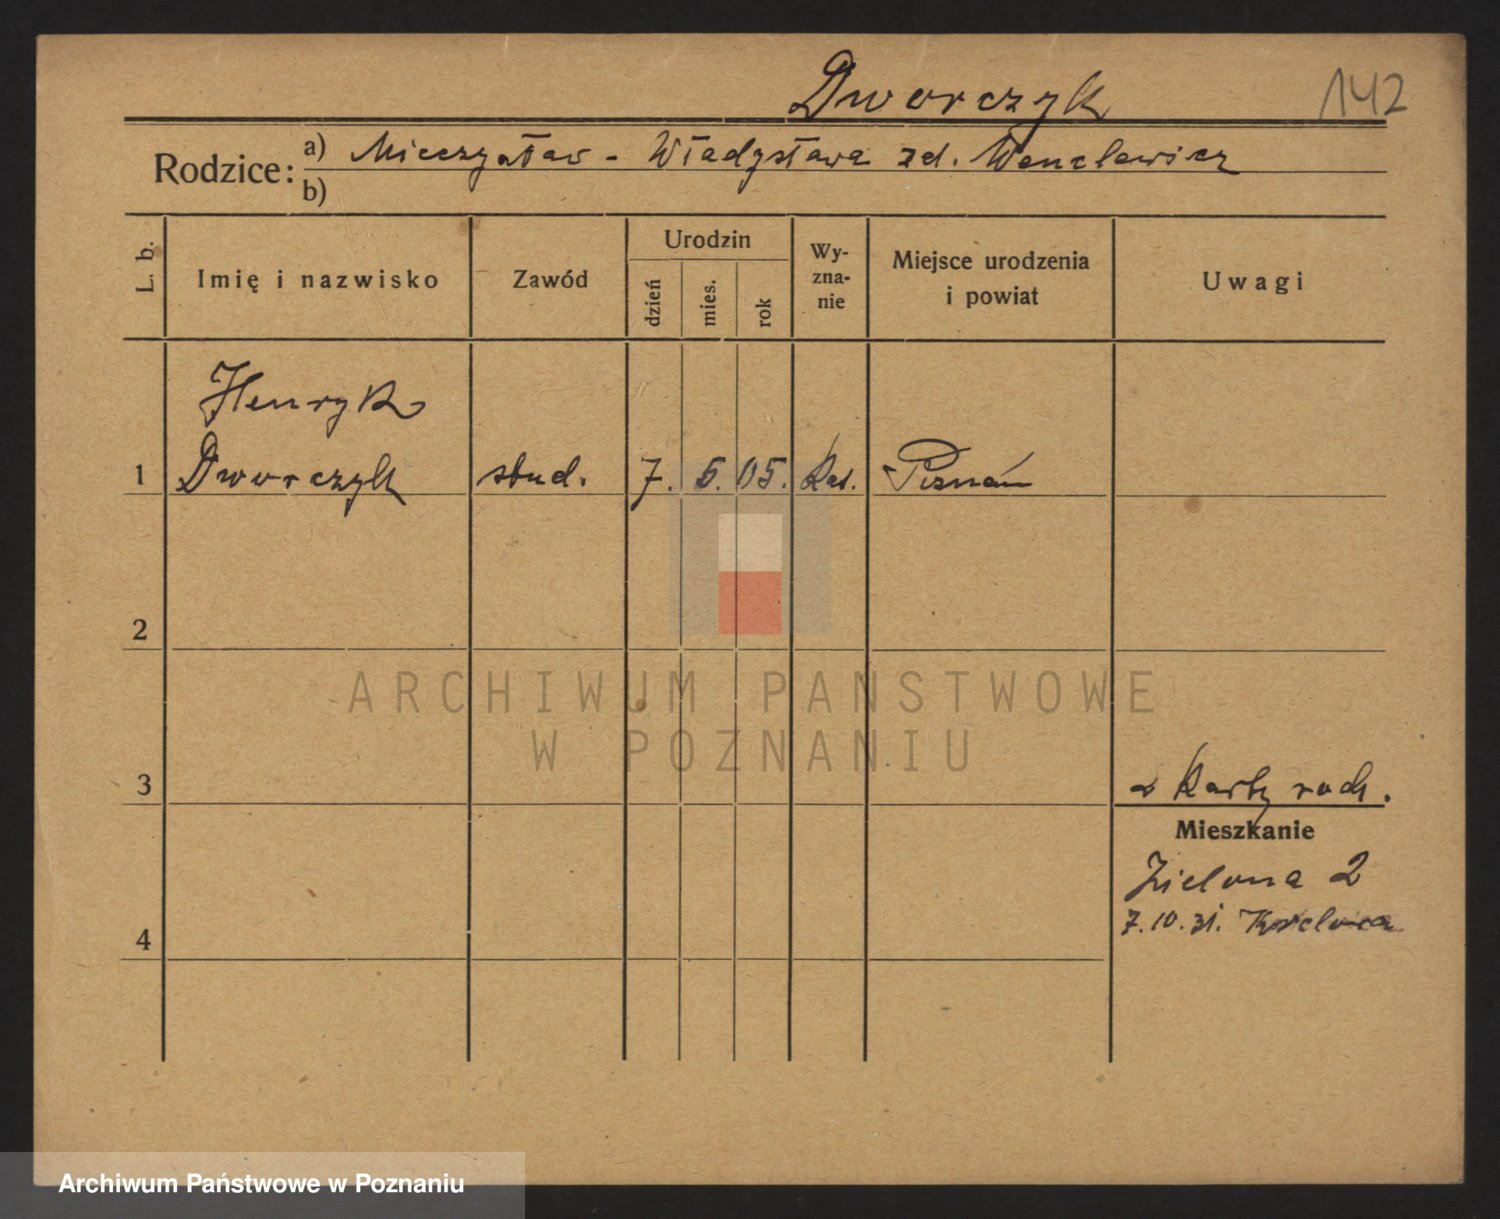 Dworczyk 142
Rodzice: a) Mieczysław - Władysława zd. Wenclewicz
b)
L. b. Imię i nazwisko Zawód Urodzin dzień mies. rok Wy-zna-nie Miejsce urodzenia i powiat Uwagi
Henryk
1 Dworczyk stud. 7. 5. 05. Kat. Poznań
2
ARCHIWUM PAŃSTWOWE
W POZNANIU
3 karty rodz.
Mieszkanie
Zielona 2
4 7.10.31.
Archiwum Państwowe w Poznaniu